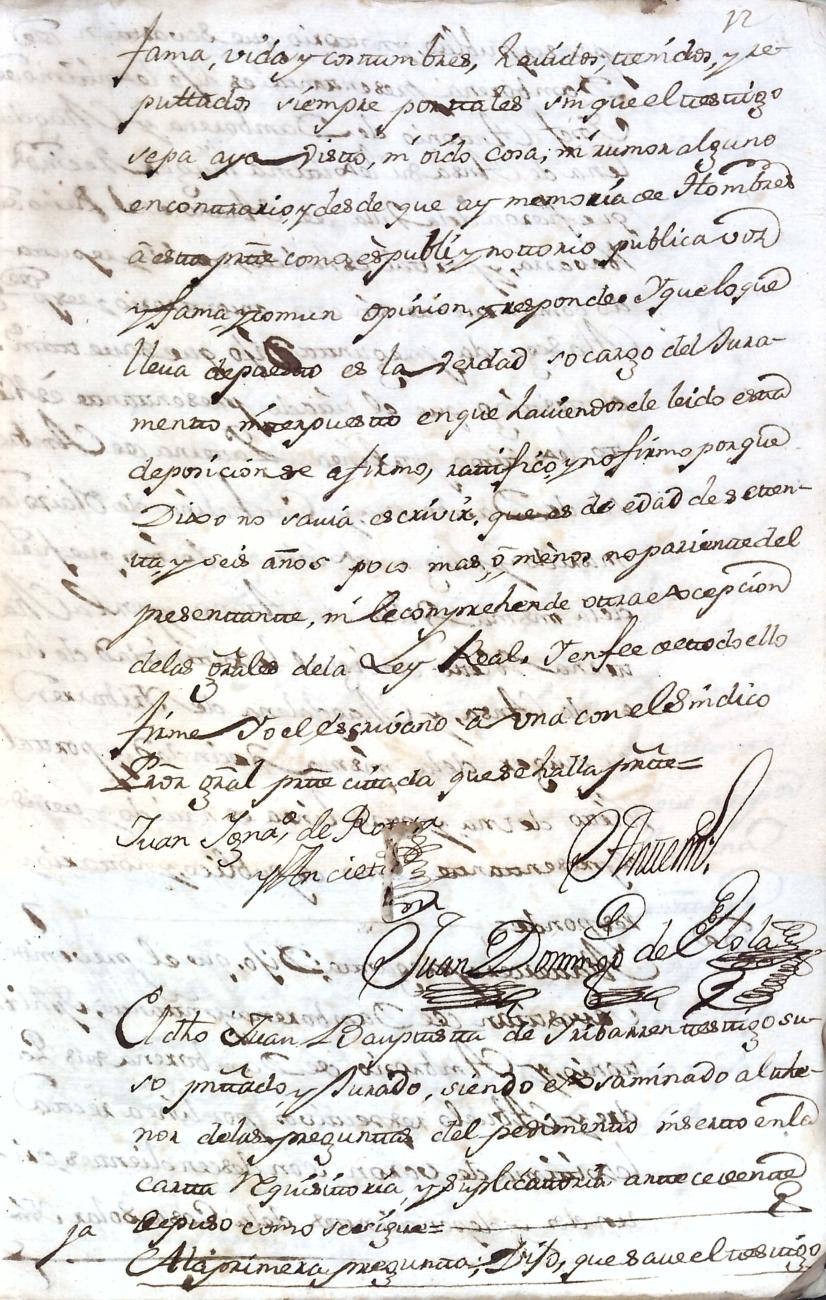 12
fama, vida, y costumbres, havidos, ttenidos, y re-
puttados siempre por ttales sin que el ttesttigo
sepa aya visto, ni oido cosa, ni rumor alguno
en conttrario, y desde que ay memoria de Hombres
â estta prtte como es publi y nottorio publica voz
y fama, y comun opinion, y responde. Y que lo que
lleva depuestto es la verdad so cargo del Jura-
mentto intterpuestto en que haviendosele leido estta
deposicion se afirmo, rattifico, y no firmo porque
Dixo no savia escrivir, que es de edad de setten-
tta, y seis años poco mas, ô menos no parientte del
presenttantte, ni le comprehende ottra excepcion
de las grâles de la Ley Real. Y en fee de ttodo ello
firme Yo el Escrivano â una con el Sindico
Prôr grâl prtte cittada que se halla prtte=
Juan Ygnaº de
y Ancieta
Antemi
Juan Domingo de
El dho Juan Bauptista de Yribarren ttesttigo su-
so prttado, y Jurado, siendo exsaminado al tthe-
nor de las pregunttas del pedimentto insertto en la
cartta Requisittoria, y suplicattoria anttecedentte
depuso como se sigue=
1a A la primera pregunta, Dijo, que save el testtigo